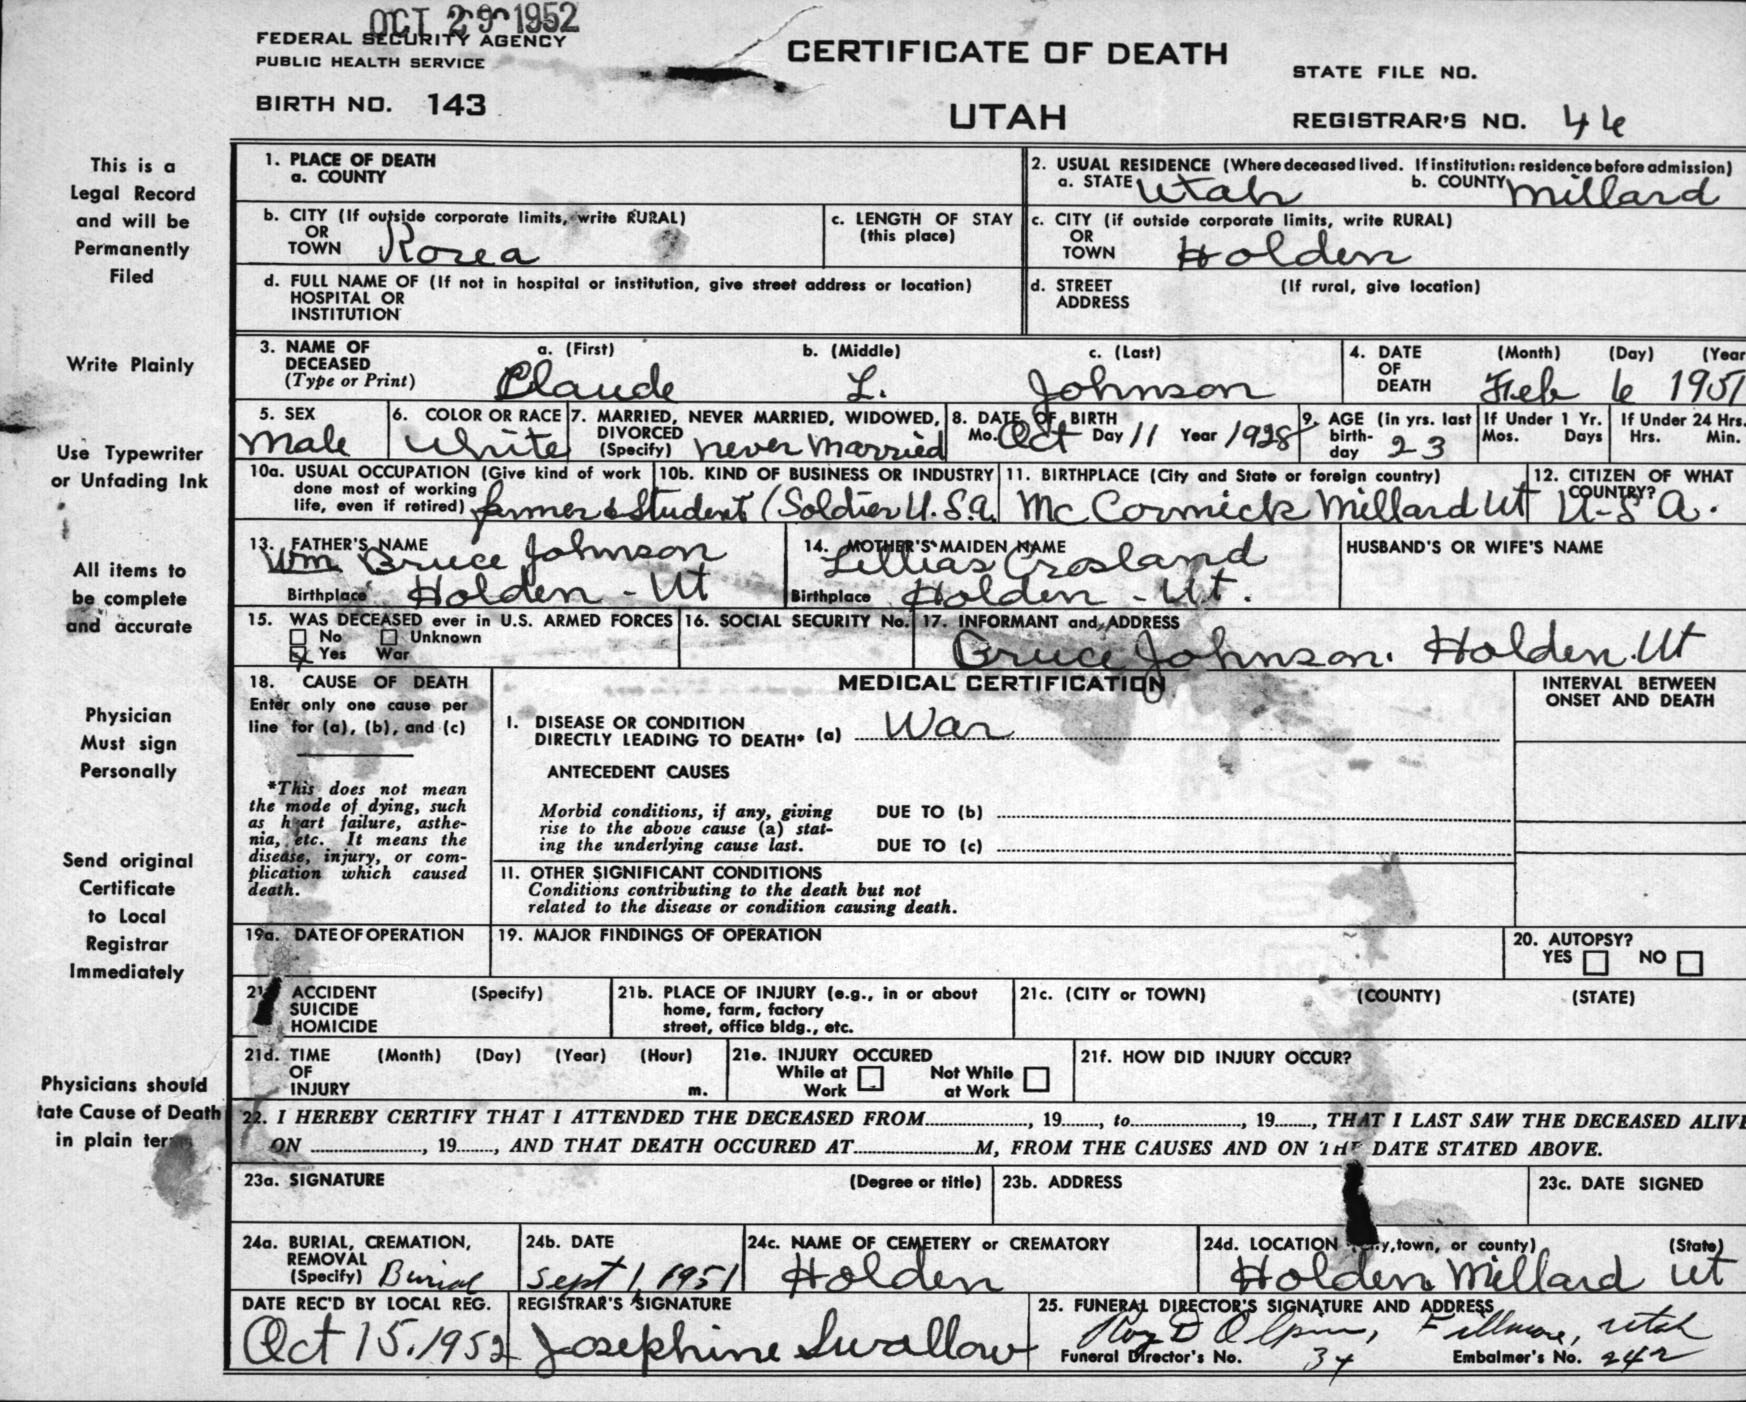 OCT 29 1952
FEDERAL SECURITY AGENCY
PUBLIC HEALTH SERVICE
BIRTH NO. 143
CERTIFICATE OF DEATH
UTAH
STATE FILE NO.
REGISTRAR'S NO. 46
This is a
Legal Record
and will be
Permanently
Filed
Write Plainly
Use Typewriter
or Unfading Ink
All items to
be complete
and accurate
Physician
Must sign
Personally
Send original
Certificate
to Local
Registrar
Immediately
Physicians should
tate Cause of Death
in plain
1. PLACE OF DEATH
a. COUNTY
2. USUAL RESIDENCE (Where deceased lived. If institution: residence before admission)
a. STATE Utah b. COUNTY Millard
b. CITY (If outside corporate limits, write RURAL)
OR
TOWN Korea
c. LENGTH OF STAY
(this place)
c. CITY (if outside corporate limits, write RURAL)
OR
TOWN Holden
d. FULL NAME OF (If not in hospital or institution, give street address or location)
HOSPITAL OR
INSTITUTION
d. STREET (If rural, give location)
ADDRESS
3. NAME OF DECEASED (Type or Print)
a. (First) b. (Middle) c. (Last)
Claude L. Johnson
4. DATE OF DEATH (Month) (Day) (Year
Feb 6 1951
5. SEX
Male
6. COLOR OR RACE
White
7. MARRIED, NEVER MARRIED, WIDOWED,
DIVORCED
(Specify) never Married
8. DATE OF BIRTH
Mo. Oct Day 11 Year 1928
9. AGE (in yrs. last
birth-
day 23
If Under 1 Yr.
Mos. Days
If Under 24 Hrs.
Hrs. Min.
10a. USUAL OCCUPATION (Give kind of work
done most of working
life, even if retired) farmer & Student
10b. KIND OF BUSINESS OR INDUSTRY
(Soldier U.S.A.
11. BIRTHPLACE (City and State or foreign country)
McCormick Millard Ut
12. CITIZEN OF WHAT
COUNTRY?
U-S A.
13. FATHER'S NAME
Wm. Bruce Johnson
Birthplace Holden - Ut
14. MOTHER'S MAIDEN NAME
Lillias Crosland
Birthplace Holden - Ut.
HUSBAND'S OR WIFE'S NAME
15. WAS DECEASED ever in U.S. ARMED FORCES
No Unknown
Yes War
16. SOCIAL SECURITY No.
17. INFORMANT and ADDRESS
Bruce Johnson. Holden. Ut
18. CAUSE OF DEATH
Enter only one cause per
line for (a), (b), and (c)
*This does not mean
the mode of dying, such
as heart failure, asthe-
nia, etc. It means the
disease, injury, or com-
plication which caused
death.
MEDICAL CERTIFICATION
INTERVAL BETWEEN
ONSET AND DEATH
I. DISEASE OR CONDITION
DIRECTLY LEADING TO DEATH* (a) War
ANTECEDENT CAUSES
Morbid conditions, if any, giving
rise to the above cause (a) stat-
ing the underlying cause last.
DUE TO (b)
DUE TO (c)
II. OTHER SIGNIFICANT CONDITIONS
Conditions contributing to the death but not
related to the disease or condition causing death.
19a. DATE OF OPERATION
19. MAJOR FINDINGS OF OPERATION
20. AUTOPSY?
YES NO
ACCIDENT (Specify)
SUICIDE
HOMICIDE
21b. PLACE OF INJURY (e.g., in or about
home, farm, factory
street, office bldg., etc.
21c. (CITY or TOWN) (COUNTY) (STATE)
21d. TIME (Month) (Day) (Year) (Hour)
OF
INJURY m.
21e. INJURY OCCURED
While at Work
Not While at Work
21f. HOW DID INJURY OCCUR?
22. I HEREBY CERTIFY THAT I ATTENDED THE DECEASED FROM, 19, to, 19, THAT I LAST SAW THE DECEASED ALIVE
ON, 19, AND THAT DEATH OCCURED AT M, FROM THE CAUSES AND ON THE DATE STATED ABOVE.
23a. SIGNATURE (Degree or title)
23b. ADDRESS
23c. DATE SIGNED
24a. BURIAL, CREMATION,
REMOVAL
(Specify) Burial
24b. DATE
Sept 1, 1951
24c. NAME OF CEMETERY or CREMATORY
Holden
24d. LOCATION town, or county) (State)
Holden Millard Ut
DATE REC'D BY LOCAL REG.
Oct 15, 1952
REGISTRAR'S SIGNATURE
Josephine Swallow
25. FUNERAL DIRECTOR'S SIGNATURE AND ADDRESS
Roy D Olpin, Fillmore, Utah
Funeral Director's No. 34 Embalmer's No. 242